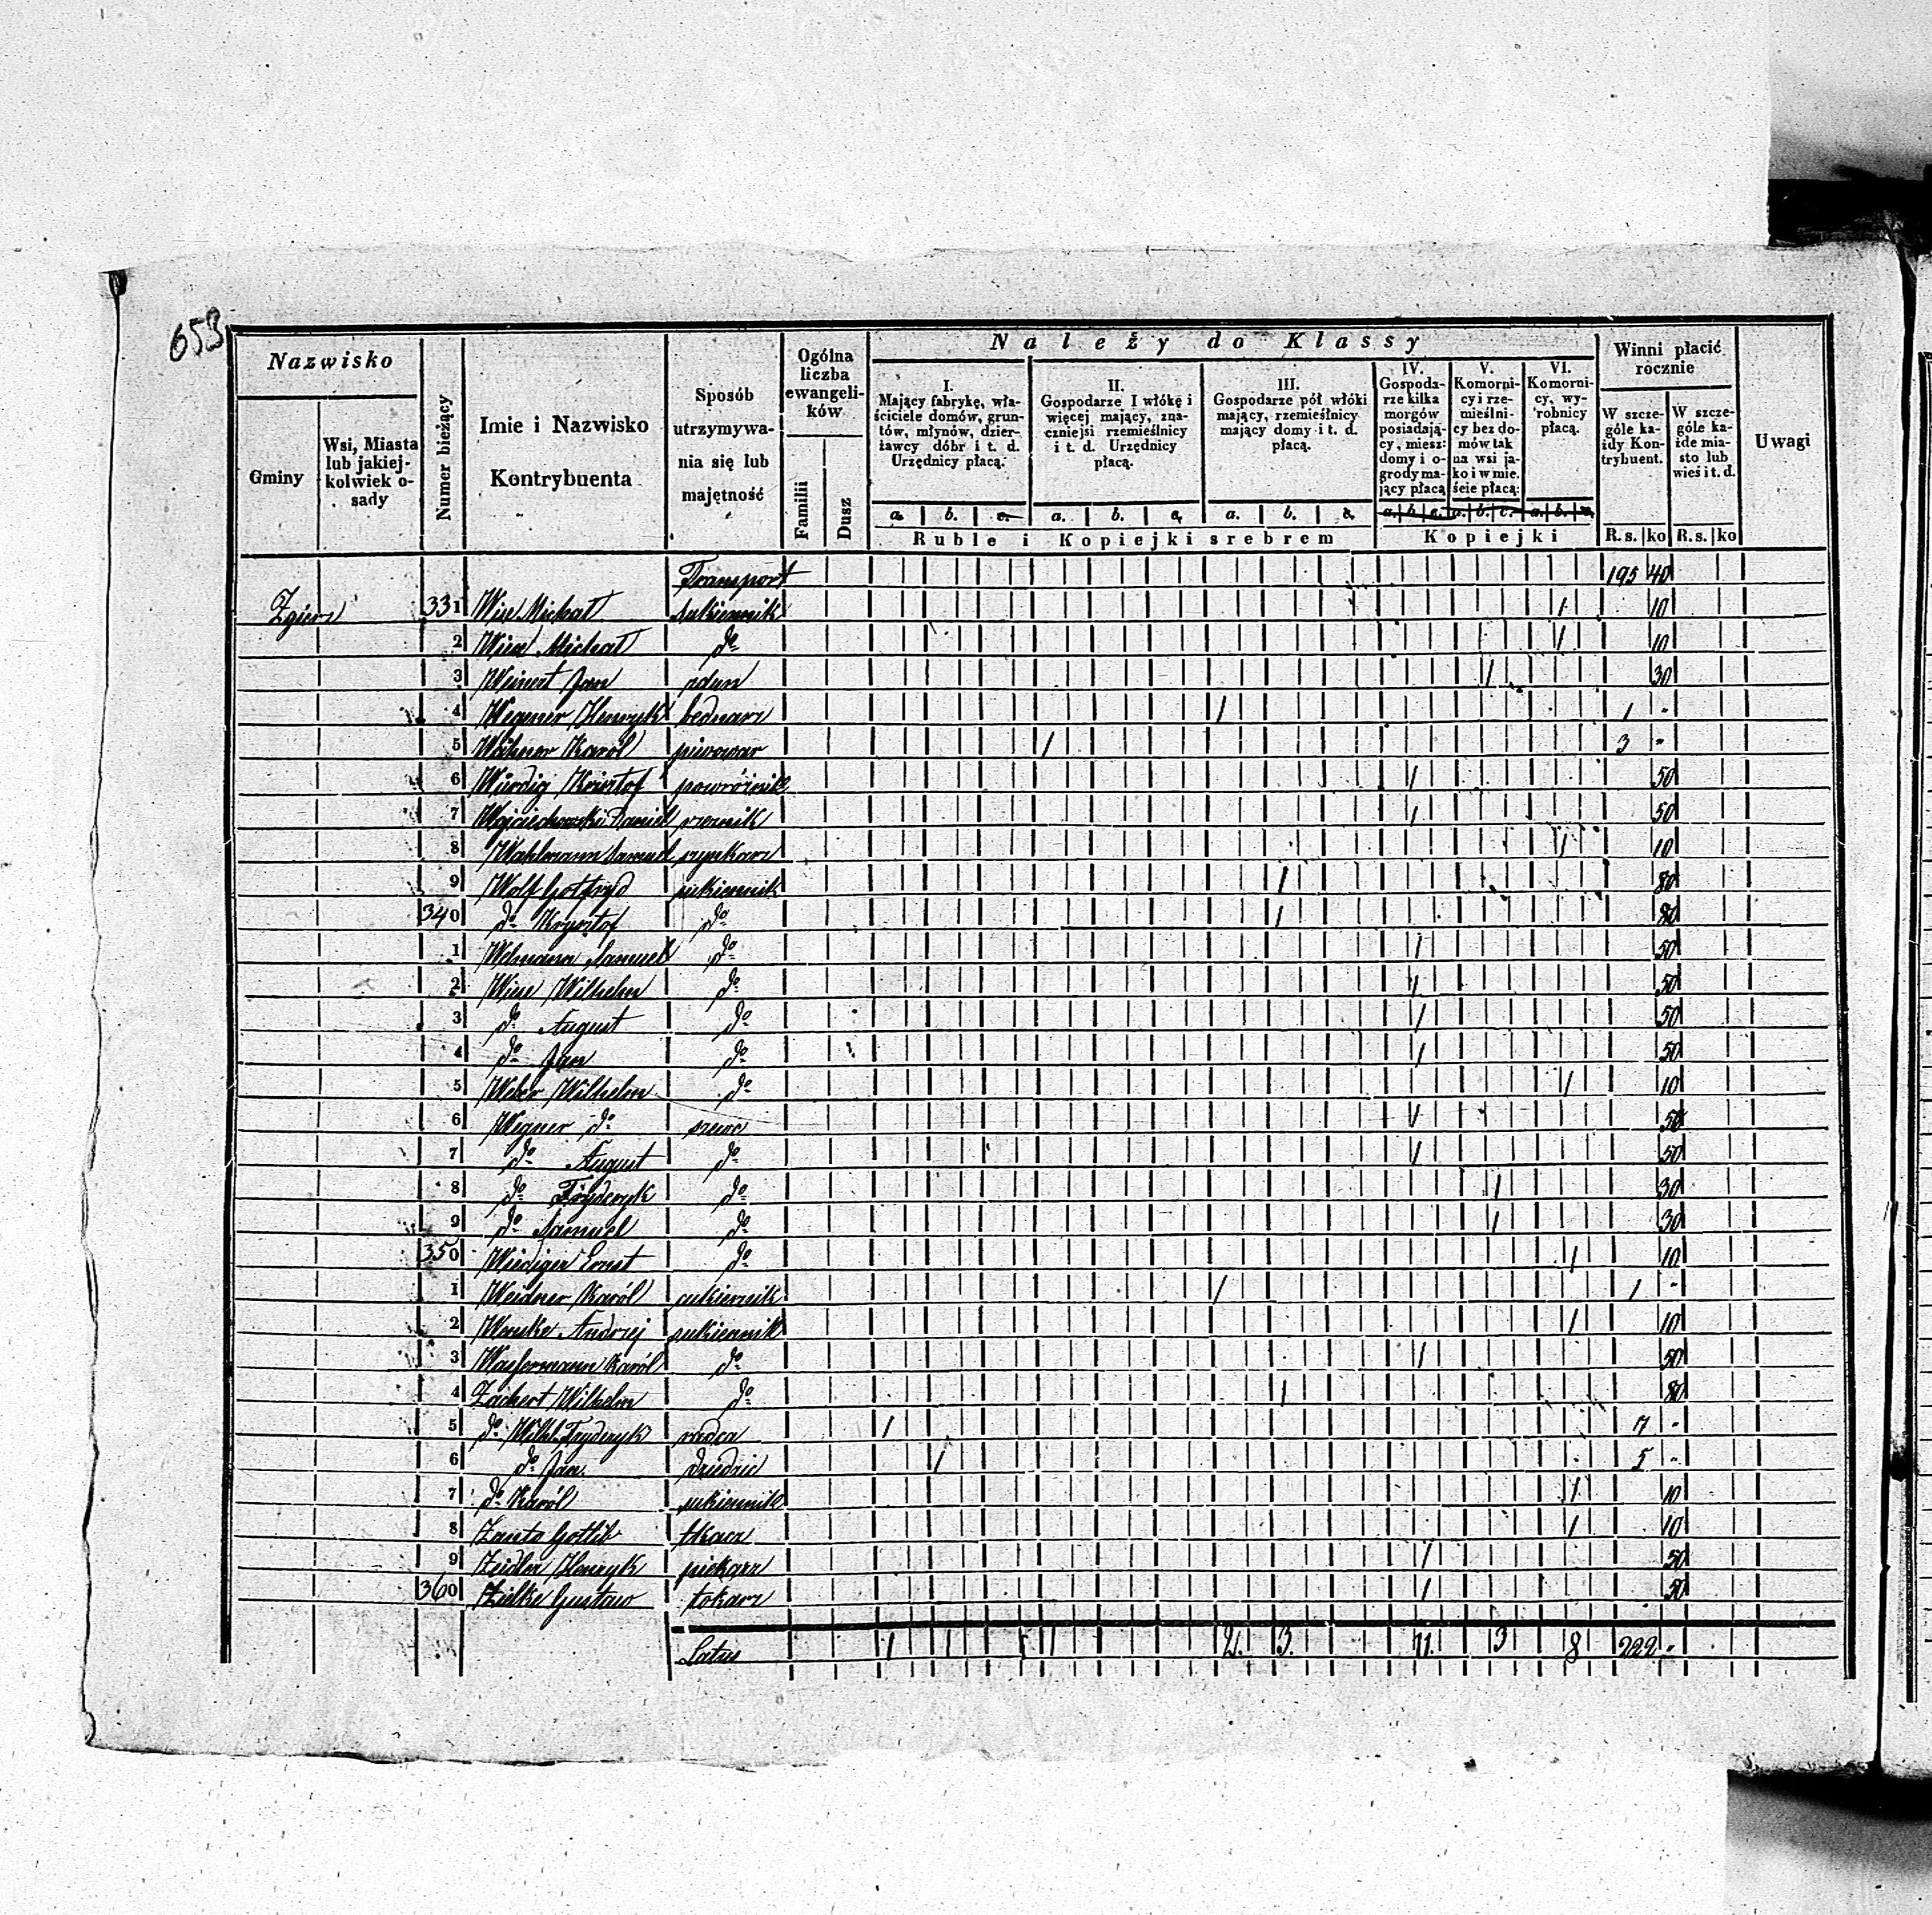 653
Nazwisko
Gminy
Wsi, Miasta lub jakiej- kolwiek o- sady
Numer bieżący
Imie i Nazwisko Kontrybuenta
Sposób utrzymywa- nia się lub majętność
Ogólna liczba ewangeli- ków
Familii
Dusz
Należy do Klassy
I. Mający fabrykę, wła- ściciele domów, grun- tów, młynów, dzier- żawcy dóbr i t. d. Urzędnicy płacą.
II. Gospodarze I włókę i więcej mający, zna- czniejsi rzemieślnicy i t. d. Urzędnicy płacą.
III. Gospodarze pół włóki mający, rzemieślnicy mający domy i t. d. płacą.
IV. Gospoda- rze kilka morgów posiadają- cy, miesz: domy i o- grody ma- jący płacą
V. Komorni- cy i rze- mieślni- cy bez do- mów tak na wsi ja- ko i w mie. ście płacą:
VI. Komorni- cy, wy- robnicy płacą.
Winni płacić rocznie
W szcze- góle ka- żdy Kon- trybuent.
W szcze- góle ka- żde mia- sto lub wieś i t. d.
Uwagi
a. b. c. a. b. c. a. b. c. a. b. c. a. b. c. a. b. c.
Ruble i Kopiejki srebrem
Kopiejki
R.s. ko R.s. ko
Transport 195 40
Zgierz 331 Michał sukiennik 1 10
2 Michał do 1 10
3 Weinert Jan 1 30
4 Wegener Henryk bednarz 1 1 "
5 Karól piwowar 1 3 "
6 Würdig Krisztof powroźnik 1 50
7 Wojciechowski Daniel rzeznik 1 50
8 Wahlmann Samuel 1 10
9 Wolf Gotfryd sukiennik 1 80
340 do Krysztof do 1 80
1 Samuel do 1 50
2 Wilhelm do 1 50
3 do August do 1 50
4 do Jan do 1 50
5 Weber Wilhelm do 1 10
6 Wegner do szewc 1 50
7 do August do 1 50
8 do Fryderyk do 1 30
9 do Samuel do 1 30
350 Ernst do 1 10
1 Weidner Karól cukiernik 1 1 "
2 Wenske Andrzej sukiennik 1 10
3 Wassermann Karól do 1 50
4 Zachert Wilhelm do 1 80
5 do Wilh. Fryderyk radca 1 7 "
6 do Jan dziedzic 1 5 "
7 do Karól sukiennik 1 10
8 Gotlib tkacz 1 10
9 Zeidler Henryk piekarz 1 50
360 Zielke Gustaw tokarz 1 50
Latus 1 1 1 2. 3. 11. 3 8 222 "